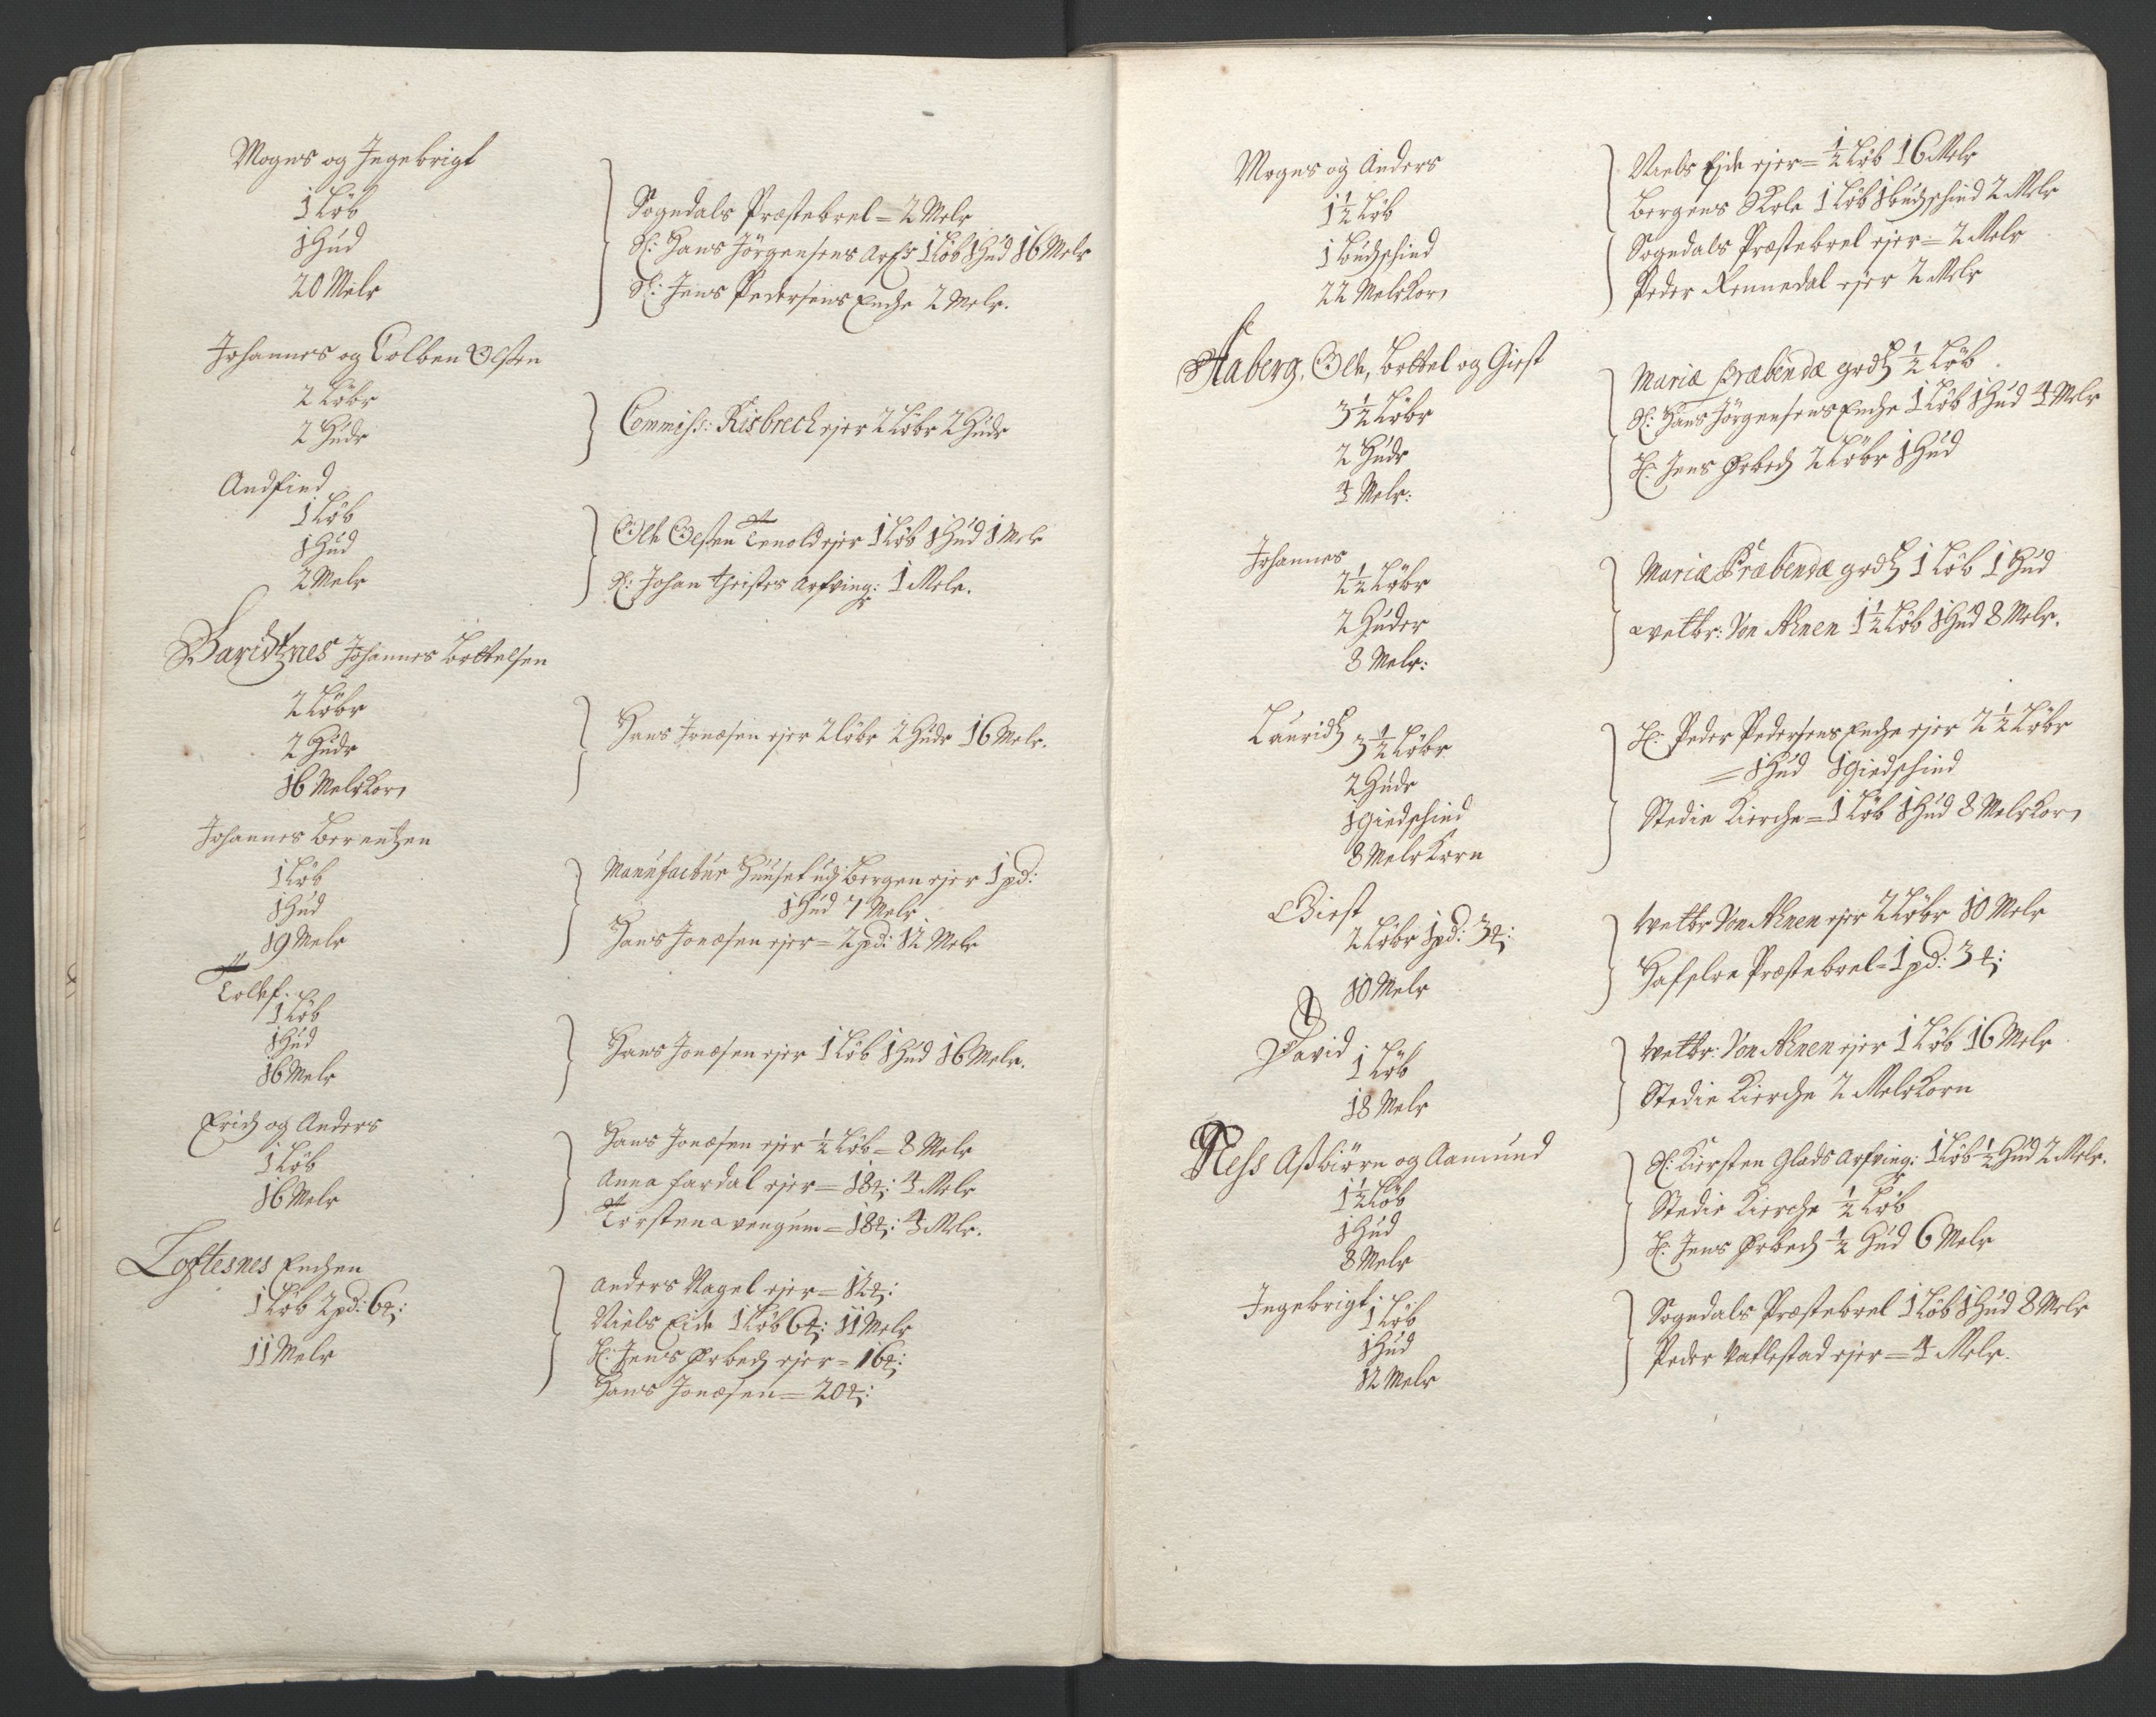 Mogens og Ingebrigt
1 Løb
1 Hud
20 Melr
Sogndals Præstebrel = 2 Melr
Sl: Hans Jørgensens Arfr 1 Løb 1 Hud 16 Melr
Sl: Jens Pedersens Enche 2 Melr.
Johannes og Colben Olsen
2 Løbr
2 Hudr
Commiss: Risbrech ejer 2 Løbr 2 Hudr
Andfind
1 Løb
1 Hud
2 Melr
Ole Olsen Tenold ejer 1 Løb 1 Hud 1 Melr
Sl: Johan Theistes Arfving: 1 Mele.
Baridtznes Johannes Bottelsen
2 Løbr
2 Hudr
16 Melr Korn
Hans Jonæsen ejer 2 Løbr 2 Hudr 16 Melr.
Johannes Berentzen
1 Løb
1 Hud
19 Melr
Manufactur Huuset udj Bergen ejer 1 pd:
1 Hud 7 Melr
Hans Jonæsen ejer = 2 pd: 12 Melr
Tollef
1 Løb
1 Hud
16 Melr
Hans Jonæsen ejer 1 Løb 1 Hud 16 Melr.
Erich og Anders
1 Løb
16 Melr
Hans Jonæsen ejer ½ Løb = 8 Melr
Anna fardal ejer = 18 ℔: 4 Melr
Torsten Avengum = 18 ℔: 4 Melr.
Loftesnes Enchen
1 Løb 2 pd: 6 ℔:
11 Melr
Anders Nagel ejer = 12 ℔:
Niels Eide 1 Løb 6 ℔: 11 Melr
H: Jens Ørbech ejer = 16 ℔:
Hans Jonæsen = 20 ℔:
Mogens og Anders
1½ Løb
1 Buchschind
22 Melr Korn
Niels Ejde ejer = ½ Løb 16 Melr
Bergens Skole 1 Løb 1 buchschind 2 Melr
Sogndals Præstebrel ejer = 2 Melr
Peder Rennedal ejer 2 Melr
Aaberg, Ole, Bottel og Giest
3½ Løbr
2 Hudr
4 Melr:
Mariæ Præbendæ godtz ½ Løb
Sl: Hans Jørgensens Enche 1 Løb 1 Hud 4 Melr
H: Jens Ørbech 2 Løbr 1 Hud
Johannes
2½ Løbr
2 Huder
8 Melr:
Mariæ Præbendæ godtz 1 Løb 1 Hud
Vetbr: Von Ahnen 1½ Løb 1 Hud 8 Melr.
Lauridtz
3½ Løbr
2 Hudr
1 Giedschind
8 Melr Korn
H: Peder Pedersens Enche ejer 2½ Løbr
= 1 Hud 1 Giedschind
Stedie Kierche = 1 Løb 1 Hud 8 Melr Korn
Giest
2 Løbr 1 pd: 3 ℔:
10 Melr
Vetbr Von Ahnen ejer 2 Løbr 10 Melr
Hafsloe Præstebrel = 1 pd: 3 ℔:
David
1 Løb
18 Melr
Vetbr: Von Ahnen ejer 1 Løb 16 Melr
Stedie Kierche 2 Melr Korn
Ness Asbiørn og Aamund
1½ Løb
1 Hud
8 Melr
Sl: Kiersten Glads Arfving: 1 Løb ½ Hud 2 Melr.
Stedie Kierche ½ Løb
H: Jens Ørbech ½ Hud 6 Melr
Ingebrigt
1 Løb
1 Hud
12 Melr
Sogndals Præstebrel 1 Løb 1 Hud 8 Melr
Peder Vatlestad ejer = 4 Melr.